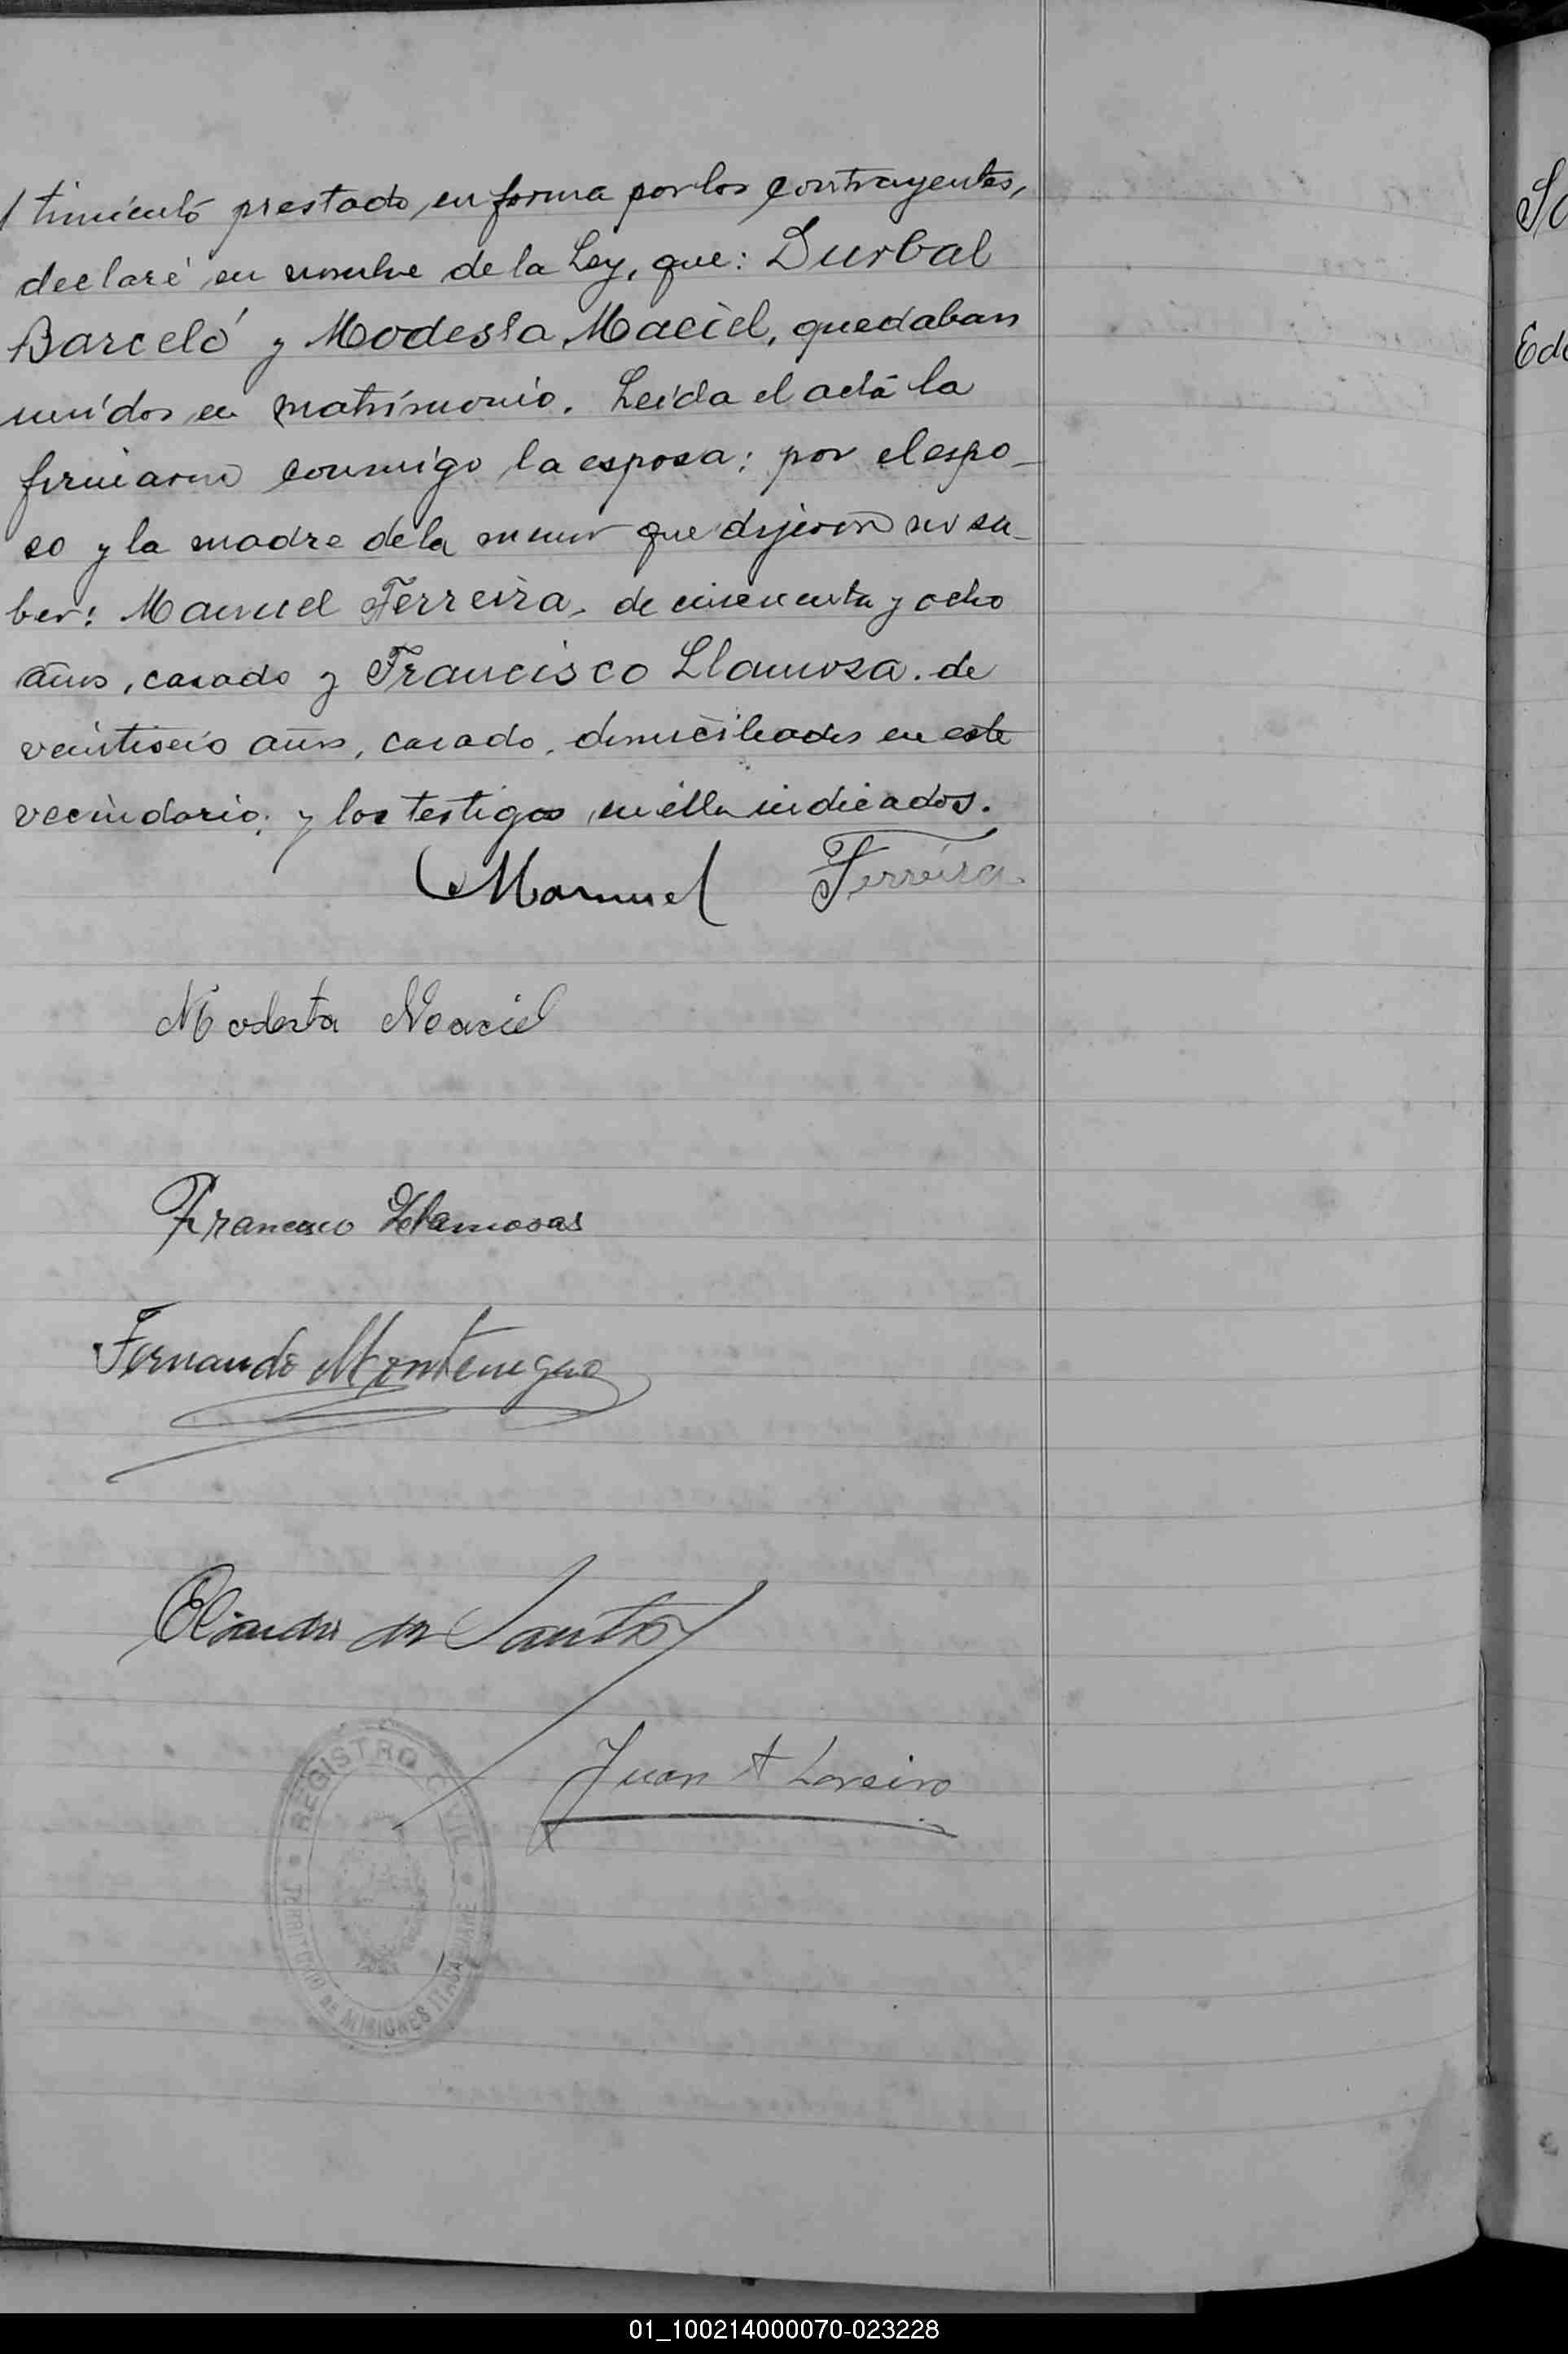 / timiento prestado en forma por los contrayentes,
declaré en nombre de la Ley, que: Durbal
Barceló y Modesta Maciel, quedaban
unidos en matrimonio. Leida el acta la
firmaron conmigo la esposa: por el espo-
so y la madre de la menor que dijeron no sa-
ber: Manuel Ferreira, de cincuenta y ocho
años, casado y Francisco Llamosa. de
veintiseis años, casado, domiciliados en este
vecindario; y los testigos en ella indicados.
Manuel Ferreira
Modesta Maciel
Francisco Llamosas
Fernando Montenegro
dos Santos
Juan A Loreiro
REGISTRO CIVIL
TERRITORIO DE MISIONES
So
Ede
01_100214000070-023228